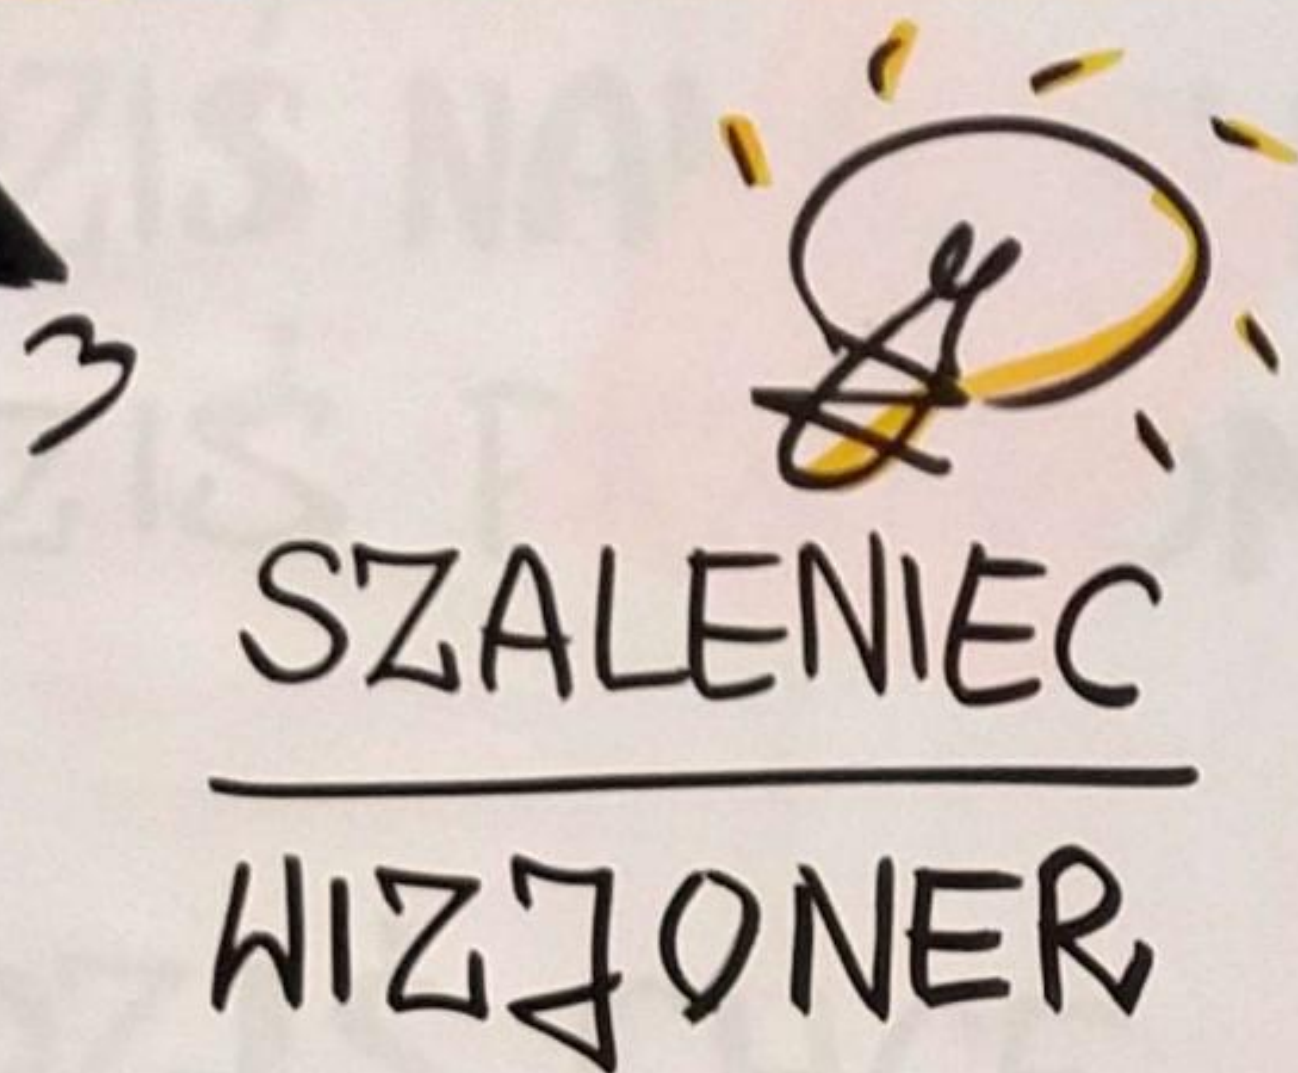 3
SZALENIEC
WIZJONER